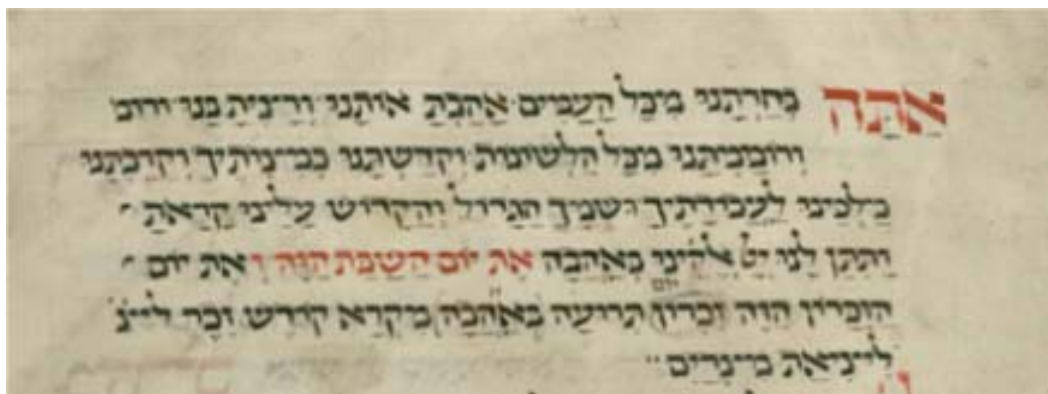 אַתָּה בְּחַרְתָּנוּ מִכָּל הָעַמִּים אָהַבְתָּ אוֹתָנוּ וְרָצִיתָ בָּנוּ ורומ
וְרוֹמַמְתָּנוּ מִכָּל הַלְּשׁוֹנוֹת וְקִדַּשְׁתָּנוּ בְּמִצְוֹתֶיךָ וְקֵרַבְתָּנוּ
מַלְכֵּינוּ לַעֲבוֹדָתֶיךָ וְשִׁמְךָ הַגָּדוֹל וְהַקָּדוֹשׁ עָלֵינוּ קָרָאתָ
וַתִּתֵּן לָנוּ יְיָ אֱלֹהֵינוּ בְּאַהֲבָה אֶת יוֹם הַשַּׁבָּת הַזֶּה וְ אֶת יוֹם
הַזִּכָּרוֹן הַזֶּה זִכְרוֹן יום תְּרוּעָה בְּאַהֲבָה מִקְרָא קוֹדֶשׁ זֵכֶר לִיצִ
לִיצִיאַת מִצְרָיִם